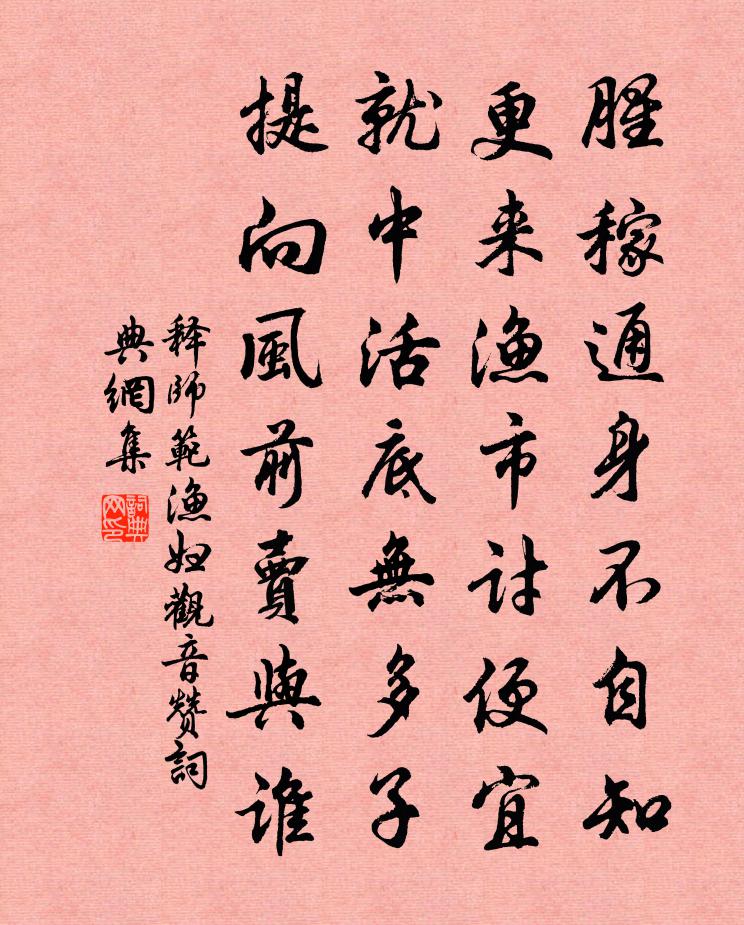 腥穢通身不自知
更来漁市討便宜
就中活底無多子
提向風前賣與誰
释師範漁婦觀音贊詞
典網集
詞典網印